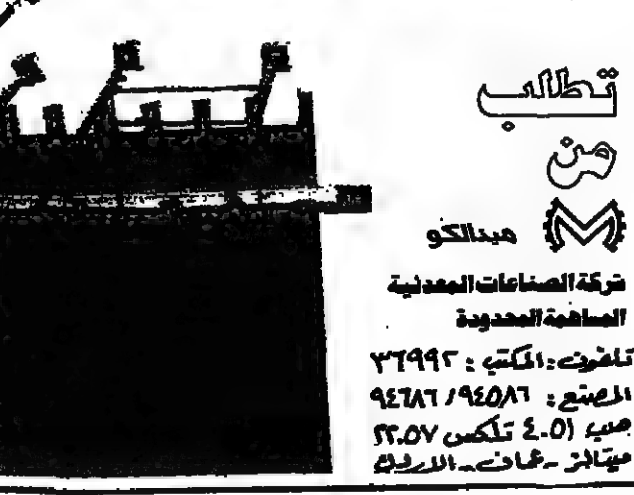 تطلب
من
ميتالكو
شركة الصناعات المعدنية
المساهمة المحدودة
تلفون: المكتب: ٣٦٩٩٢
المصنع: ٩٤٥٨٦ / ٩٤٦٨٦
ص.ب ٤٠٥١ تلكس ٢٢٠٥٧
ميتالز - عمان - الاردن